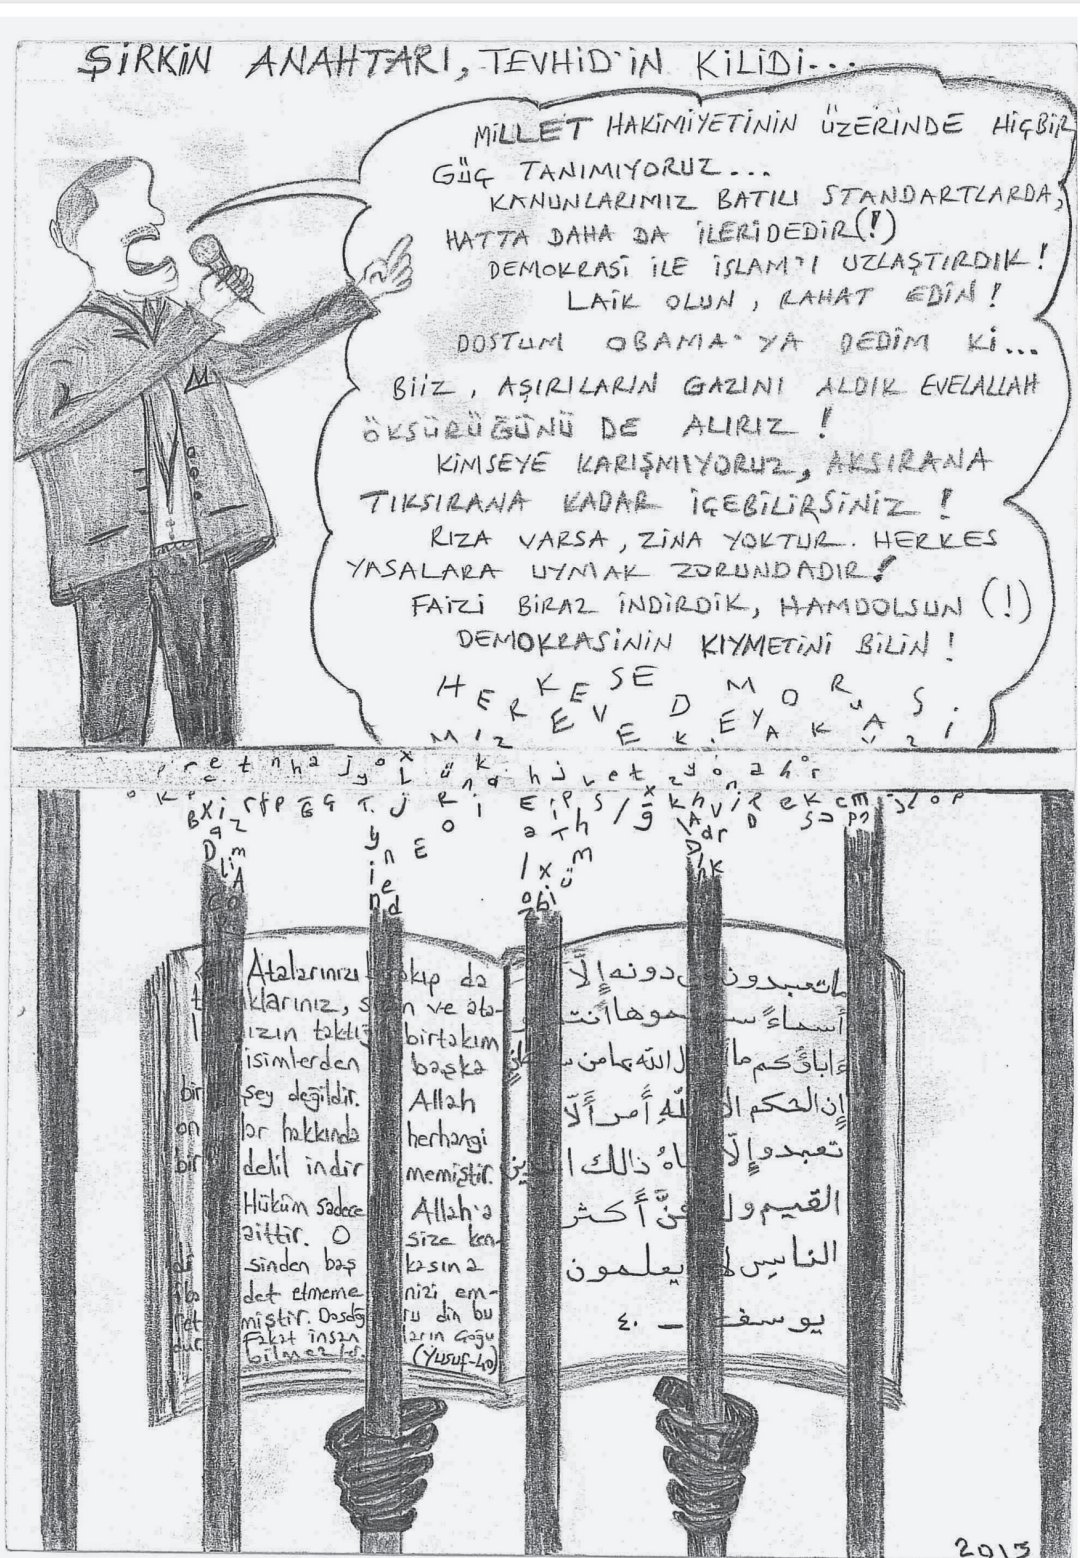 ŞİRKİN ANAHTARI, TEVHİD'İN KİLİDİ...
MİLLET HAKİMİYETİNİN ÜZERİNDE HİÇBİR
GÜÇ TANIMIYORUZ...
KANUNLARIMIZ BATILI STANDARTLARDA,
HATTA DAHA DA İLERİDEDİR(!)
DEMOKRASİ İLE İSLAM'I UZLAŞTIRDIK!
LAİK OLUN, RAHAT EDİN!
DOSTUM OBAMA'YA DEDİM Kİ...
BİİZ, AŞIRILARIN GAZINI ALDIK EVELALLAH
ÖKSÜRÜĞÜNÜ DE ALIRIZ!
KİMSEYE KARIŞMIYORUZ, AKSIRANA
TIKSIRANA KADAR İÇEBİLİRSİNİZ!
RIZA VARSA, ZİNA YOKTUR. HERKES
YASALARA UYMAK ZORUNDADIR!
FAİZİ BİRAZ İNDİRDİK, HAMDOLSUN (!)
DEMOKRASİNİN KIYMETİNİ BİLİN!
Atalarınızı kıp da
klarınız, s n ve ata-
ızın taktığ birtakım
isimlerden başka
bir şey değildir. Allah
on lar hakkında herhangi
bir delil indir memiştir.
Hüküm sadece Allah'a
aittir. O size ken-
di sinden baş kasına
iba det etmeme nizi em-
ret miştir. Dosdoğ ru din bu
dur. Fakat insan ların çoğu
bilmezler. (Yusuf-40)
ماتعبدون دونه إلّا
أسماءً س موها أنت
ءاباؤكم ما ل الله بها من س
إن الحكم الّ لله أمر ألّا
تعبدوا إلّا ياهُ ذالك ا دين
القيم ول كنَّ أكثر
الناس لا يعلمون
يوسف _ ٤٠
2015